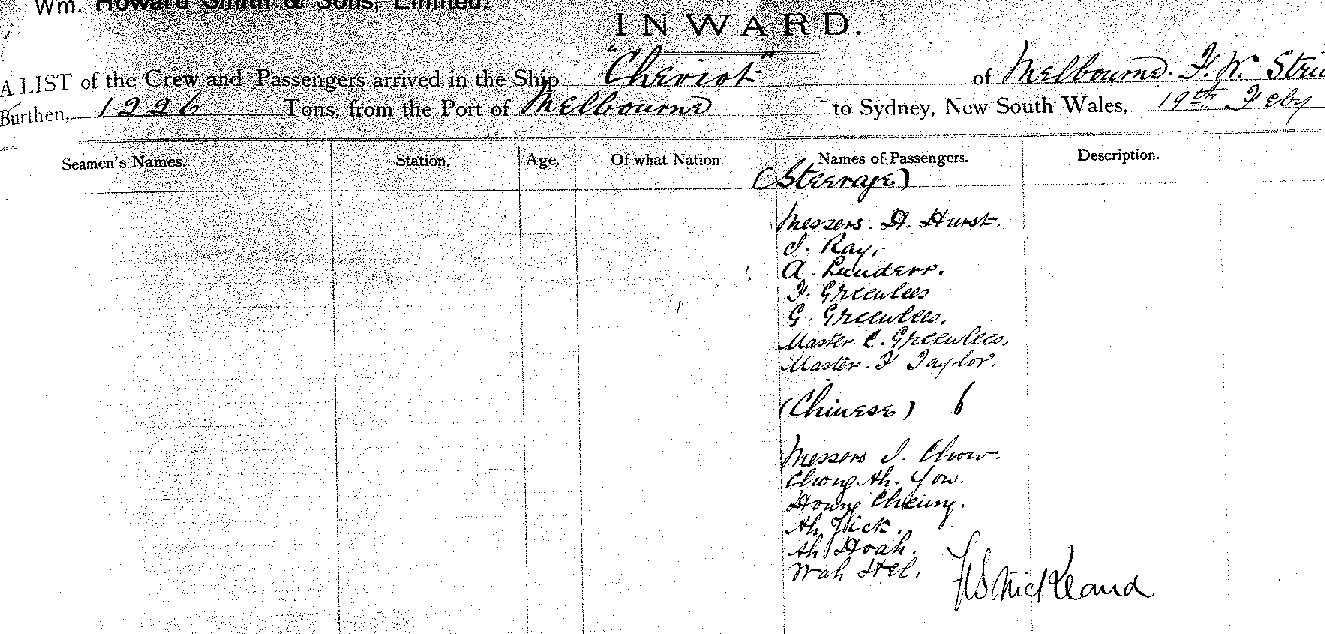 Wm. Howard Smith & Sons, Limited.
INWARD.
A LIST of the Crew and Passengers arrived in the Ship "Cheviot" of Melbourne. F. W. Stric
Burthen, 1226 Tons, from the Port of Melbourne to Sydney, New South Wales, 19th Feby
Seamen's Names. Station. Age. Of what Nation Names of Passengers. Description.
(Steerage)
Messers. H. Hurst.
J. Ray.
A.
F. Greenlees
G. Greenlees.
Master C. Greenlees.
Master. F Taylor.
(Chinese) 6
Messers J. Chow
Chong Ah. You.
Houng Cheung.
Ah Hick.
Ah Hoah.
Wah
FWStrickland